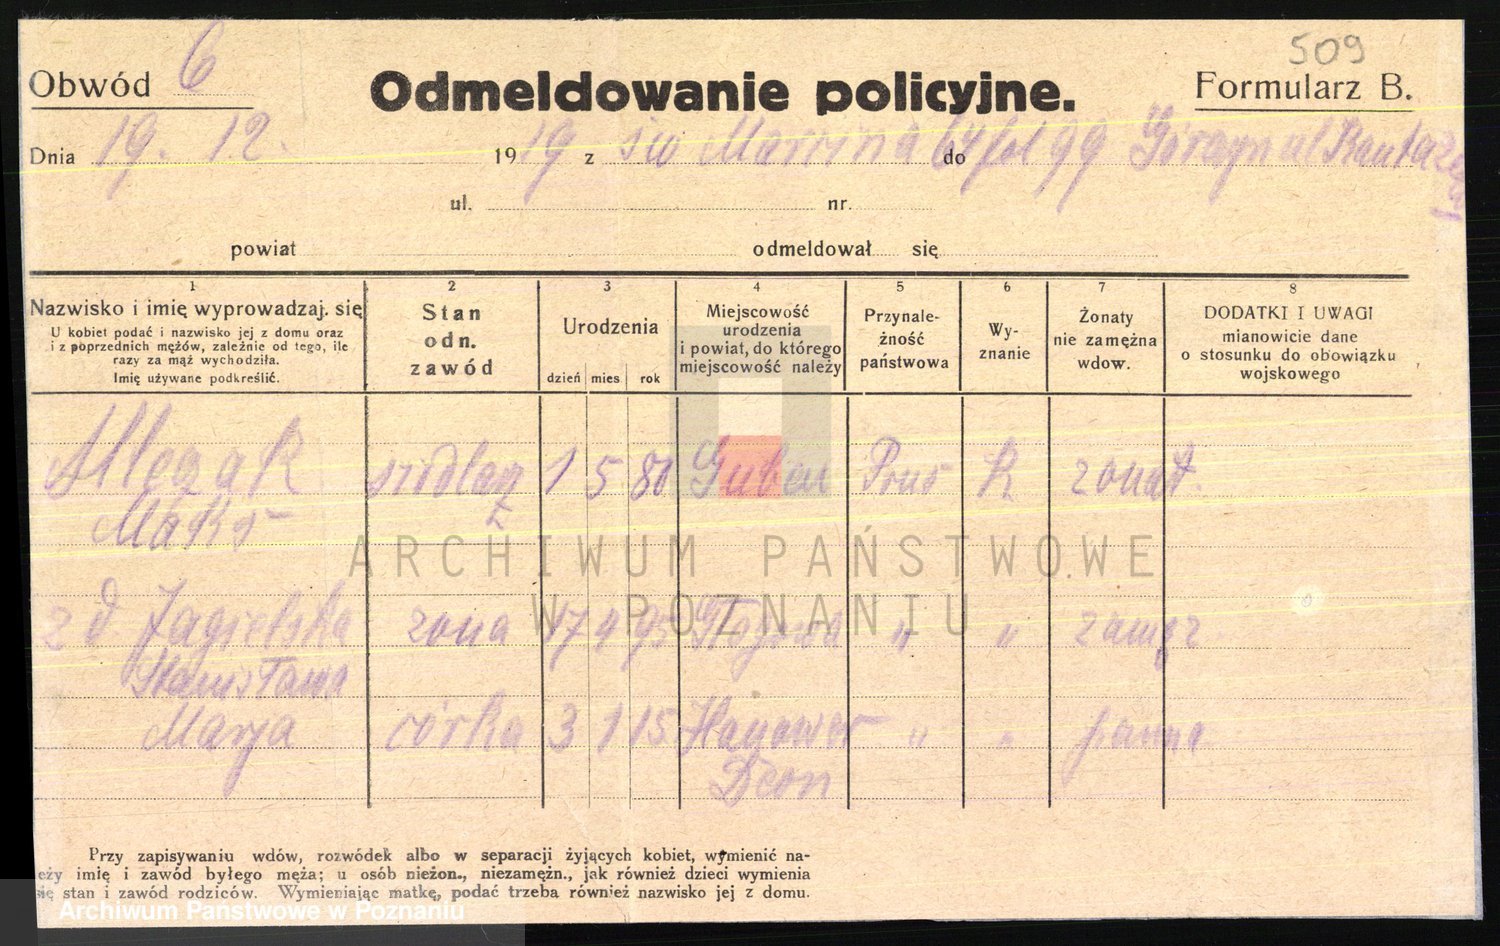 509
Obwód 6 Odmeldowanie policyjne. Formularz B.
Dnia 19. 12. 1919 z św Marcina 64 fol 99 do Górczyn ul
ul. nr.
powiat odmeldował się
1 2 3 4 5 6 7 8
Nazwisko i imię wyprowadzaj. się
U kobiet podać i nazwisko jej z domu oraz
i z poprzednich mężów, zależnie od tego, ile
razy za mąż wychodziła.
Imię używane podkreślić.
Stan
odn.
zawód
Urodzenia
dzień mies rok
Miejscowość
urodzenia
i powiat, do którego
miejscowość należy
Przynale-
żność
państwowa
Wy-
znanie
Żonaty
nie zamężna
wdow.
DODATKI I UWAGI
mianowicie dane
o stosunku do obowiązku
wojskowego
Mleczak siodlarz 1 5 80 Guben Prus K zonat.
z d. Jagielska zona 17 4 95 " " zamęz
Stanisława
Marja córka 3 1 15 Hanower " " panna
ARCHIWUM PAŃSTWOWE
W POZNANIU
Przy zapisywaniu wdów, rozwódek albo w separacji żyjących kobiet, wymienić na-
eży imię i zawód byłego męża; u osób nieżon., niezamężn., jak również dzieci wymienia
się stan i zawód rodziców. Wymieniając matkę, podać trzeba również nazwisko jej z domu.
Archiwum Państwowe w Poznaniu